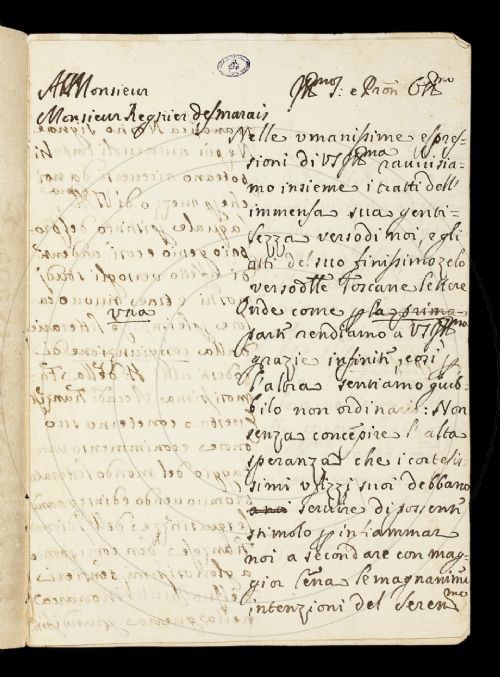 All Monsieur
Monsieur Regnier desmarais
Nelle vmanissime espres=
sioni di VS Ill.ma ravvisia=
mo insieme i tratti dell'
immensa sua genti=
lezza verso di noi, e gli
atti del suo finissimo zelo
verso dlle Toscane lettere
Onde come p la prima
vna
parte rendiamo a VS Ill.ma
grazie infinite, così p
l'altra sentiamo giub=
bilo non ordinario: Non
senza concepire l'alta
speranza che i cortesis=
simi vfizzi suoi debbano
servire di possente
stimolo p infiammar
noi a secondare con mag=
gior lena le magnanime
intenzioni del Seren.mo